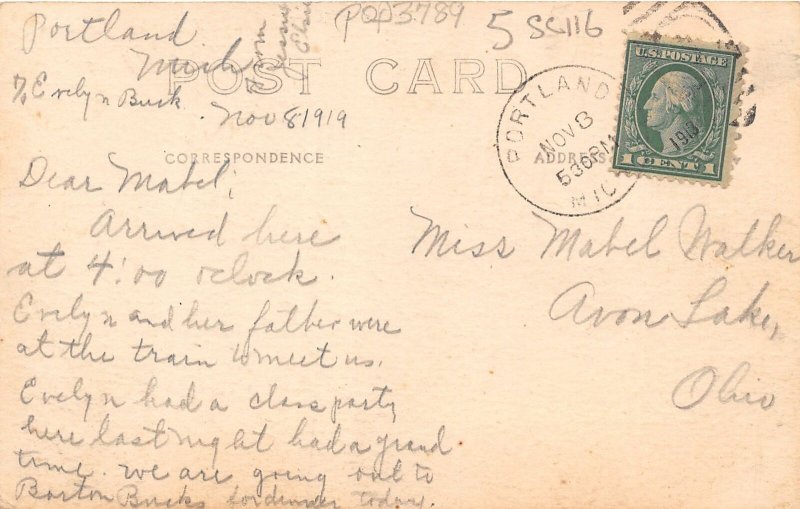 PQP3789
5 SC116
Portland
Mich
℅ Evelyn Buck
Nov 8 1919
From
Jessie
POST CARD
CORRESPONDENCE
ADDRESS
PORTLAND
NOV 8
530PM
MIC
U.S. POSTAGE
1 CENT 1
Dear Mabel,
Arrived here
at 4:00 oclock.
Evelyn and her father were
at the train to meet us.
Evelyn had a class party
here last night had a grand
time. we are going out to
Barton Bucks for dinner today.
Miss Mabel Walker
Avon Lake,
Ohio